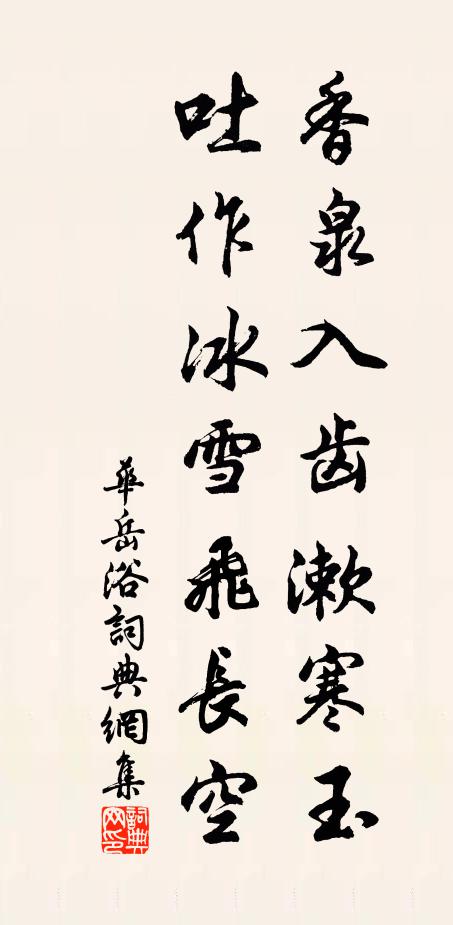 香泉入齿漱寒玉
吐作冰雪飛長空
華岳浴詞典網集
詞典網印